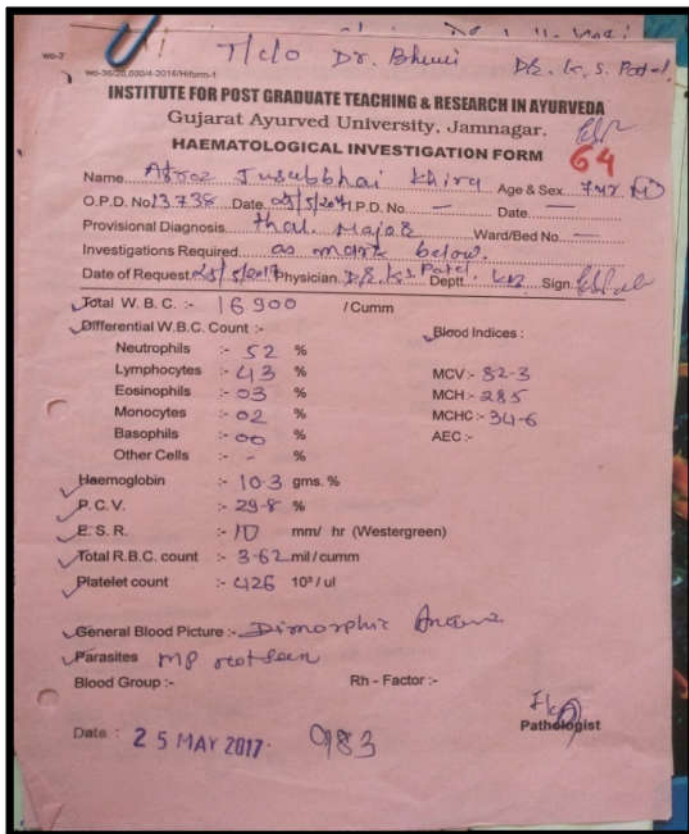 T/c/o Dr. Bhumi Dr. K. S. Patel
wo-7
wo-36/20,000/4-2016/Hiform-1
INSTITUTE FOR POST GRADUATE TEACHING & RESEARCH IN AYURVEDA
Gujarat Ayurved University, Jamnagar.
HAEMATOLOGICAL INVESTIGATION FORM 64
Name Afroz Jusubbhai Khira Age & Sex 7 yr
O.P.D. No 13738 Date 25/5/2017 I.P.D. No. — Date —
Provisional Diagnosis thal. Major Ward/Bed No. —
Investigations Required as mark below.
Date of Request 25/5/2017 Physician Dr. K.S. Patel. Deptt KB Sign.
Total W. B. C. :- 16900 /Cumm
Differential W.B.C. Count :- Blood Indices :
Neutrophils :- 52 %
Lymphocytes :- 43 % MCV :- 82-3
Eosinophils :- 03 % MCH :- 285
Monocytes :- 02 % MCHC :- 34-6
Basophils :- 00 % AEC :-
Other Cells :- - %
Haemoglobin :- 10-3 gms. %
P.C.V. :- 29-8 %
E.S.R. :- 10 mm/ hr (Westergreen)
Total R.B.C. count :- 3-62 mil/cumm
Platelet count :- 426 10³/ ul
General Blood Picture :- Dimorphic
Parasites MP not seen
Blood Group :- Rh - Factor :-
Pathologist
Date : 25 MAY 2017. 983